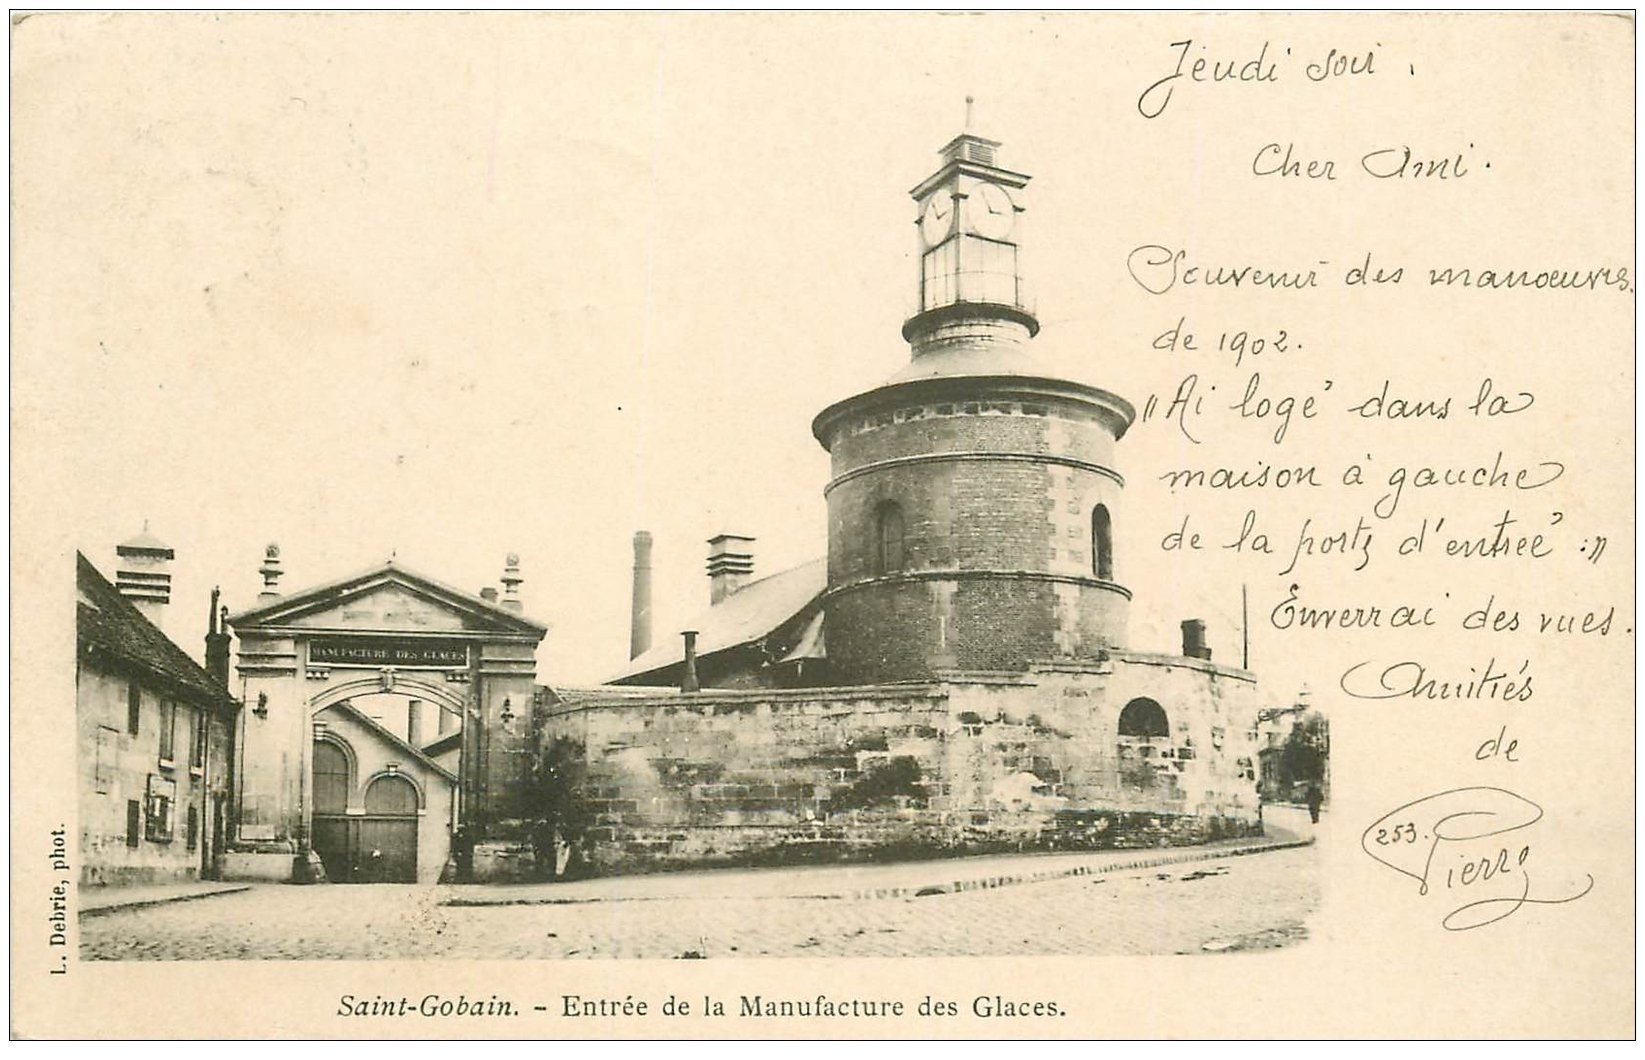 Jeudi soir.
Cher Ami.
Souvenir des manoeuvres.
de 1902.
"Ai logé dans la
maison à gauche
de la porte d'entrée :"
Enverrai des vues.
Amitiés
de
253.
Pierre
MANUFACTURE DES GLACES
L. Debrie, phot.
Saint-Gobain. - Entrée de la Manufacture des Glaces.